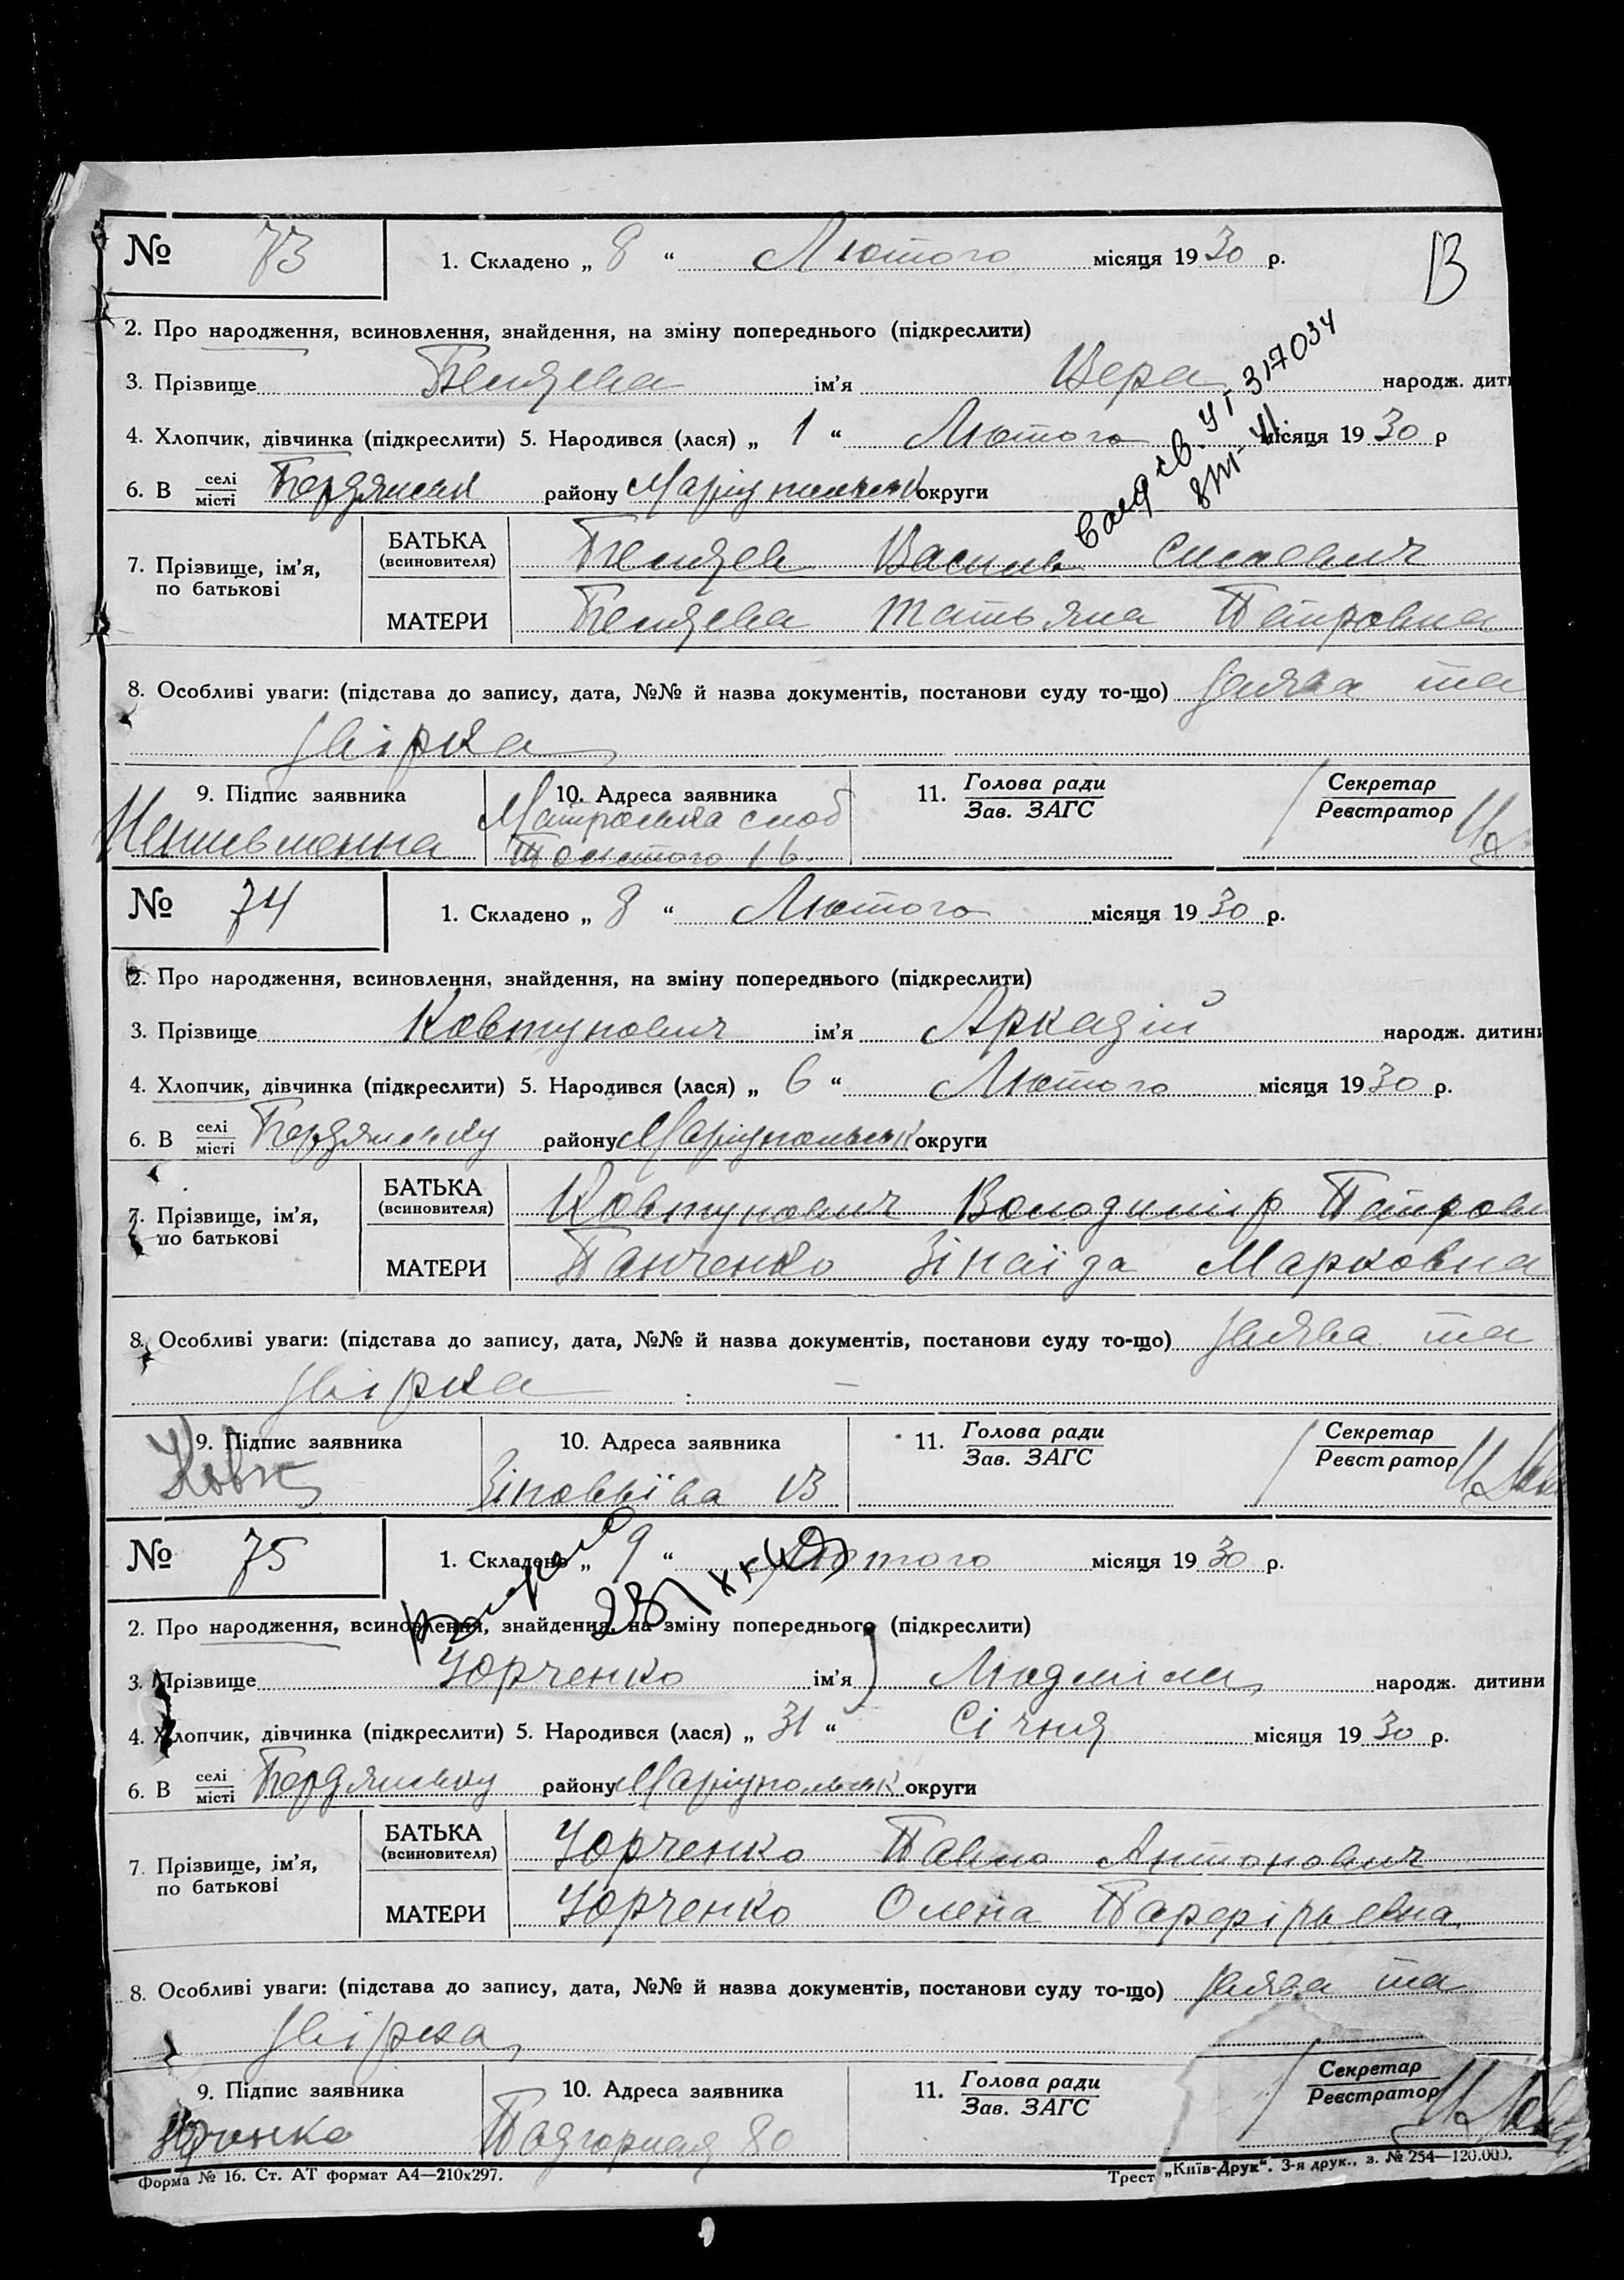 № 73 1. Складено „ 8 “ Лютого місяця 19 30 р.
В
2. Про народження, всиновлення, знайдення, на зміну попереднього (підкреслити)
3. Прізвище ім’я Вера народж. дит
4. Хлопчик, дівчинка (підкреслити) 5. Народився (лася) „ 1 “ Лютого місяця 19 30 р
317034
6. В селі місті району округи
7. Прізвище, ім’я, по батькові
БАТЬКА (всиновителя)
МАТЕРИ Татьяна Петровна
8. Особливі уваги: (підстава до запису, дата, №№ й назва документів, постанови суду то-що) заява та
звірка
9. Підпис заявника 10. Адреса заявника 11. Голова ради Зав. ЗАГС Секретар Реєстратор
Неписьменна Толстого 16
№ 74 1. Складено „ 8 “ Лютого місяця 19 30 р.
2. Про народження, всиновлення, знайдення, на зміну попереднього (підкреслити)
3. Прізвище Ковтунович ім’я Аркадій народж. дитини
4. Хлопчик, дівчинка (підкреслити) 5. Народився (лася) „ 6 “ Лютого місяця 19 30 р.
6. В селі місті Бердянську району Маріупольськ округи
7. Прізвище, ім’я, по батькові
БАТЬКА (всиновителя) Ковтунович Володимір Петрови
МАТЕРИ Панченко Зінаїда Марковна
8. Особливі уваги: (підстава до запису, дата, №№ й назва документів, постанови суду то-що) заява та
звірка
9. Підпис заявника 10. Адреса заявника 11. Голова ради Зав. ЗАГС Секретар Реєстратор
Ковт 13
№ 75 1. Складено „ 9 “ Лютого місяця 19 30 р.
2. Про народження, всиновлення, знайдення, на зміну попереднього (підкреслити)
3. Прізвище Юрченко ім’я Людміла народж. дитини
4. Хлопчик, дівчинка (підкреслити) 5. Народився (лася) „ 31 “ Січня місяця 19 30 р.
6. В селі місті Бердянську району Маріупольськ округи
7. Прізвище, ім’я, по батькові
БАТЬКА (всиновителя) Юрченко Павло Антонович
МАТЕРИ Юрченко Олена
8. Особливі уваги: (підстава до запису, дата, №№ й назва документів, постанови суду то-що) заява та
звірка
9. Підпис заявника 10. Адреса заявника 11. Голова ради Зав. ЗАГС Секретар Реєстратор
Подгорная 80
Форма № 16. Ст. АТ формат А4—210x297. Трест „Київ-Друк“. 3-я друк., з. № 254—120.000.